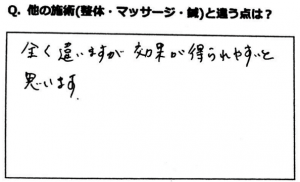 Q. 他の施術(整体・マッサージ・鍼)と違う点は？
全く違いますが 効果が得られやすいと
思います.